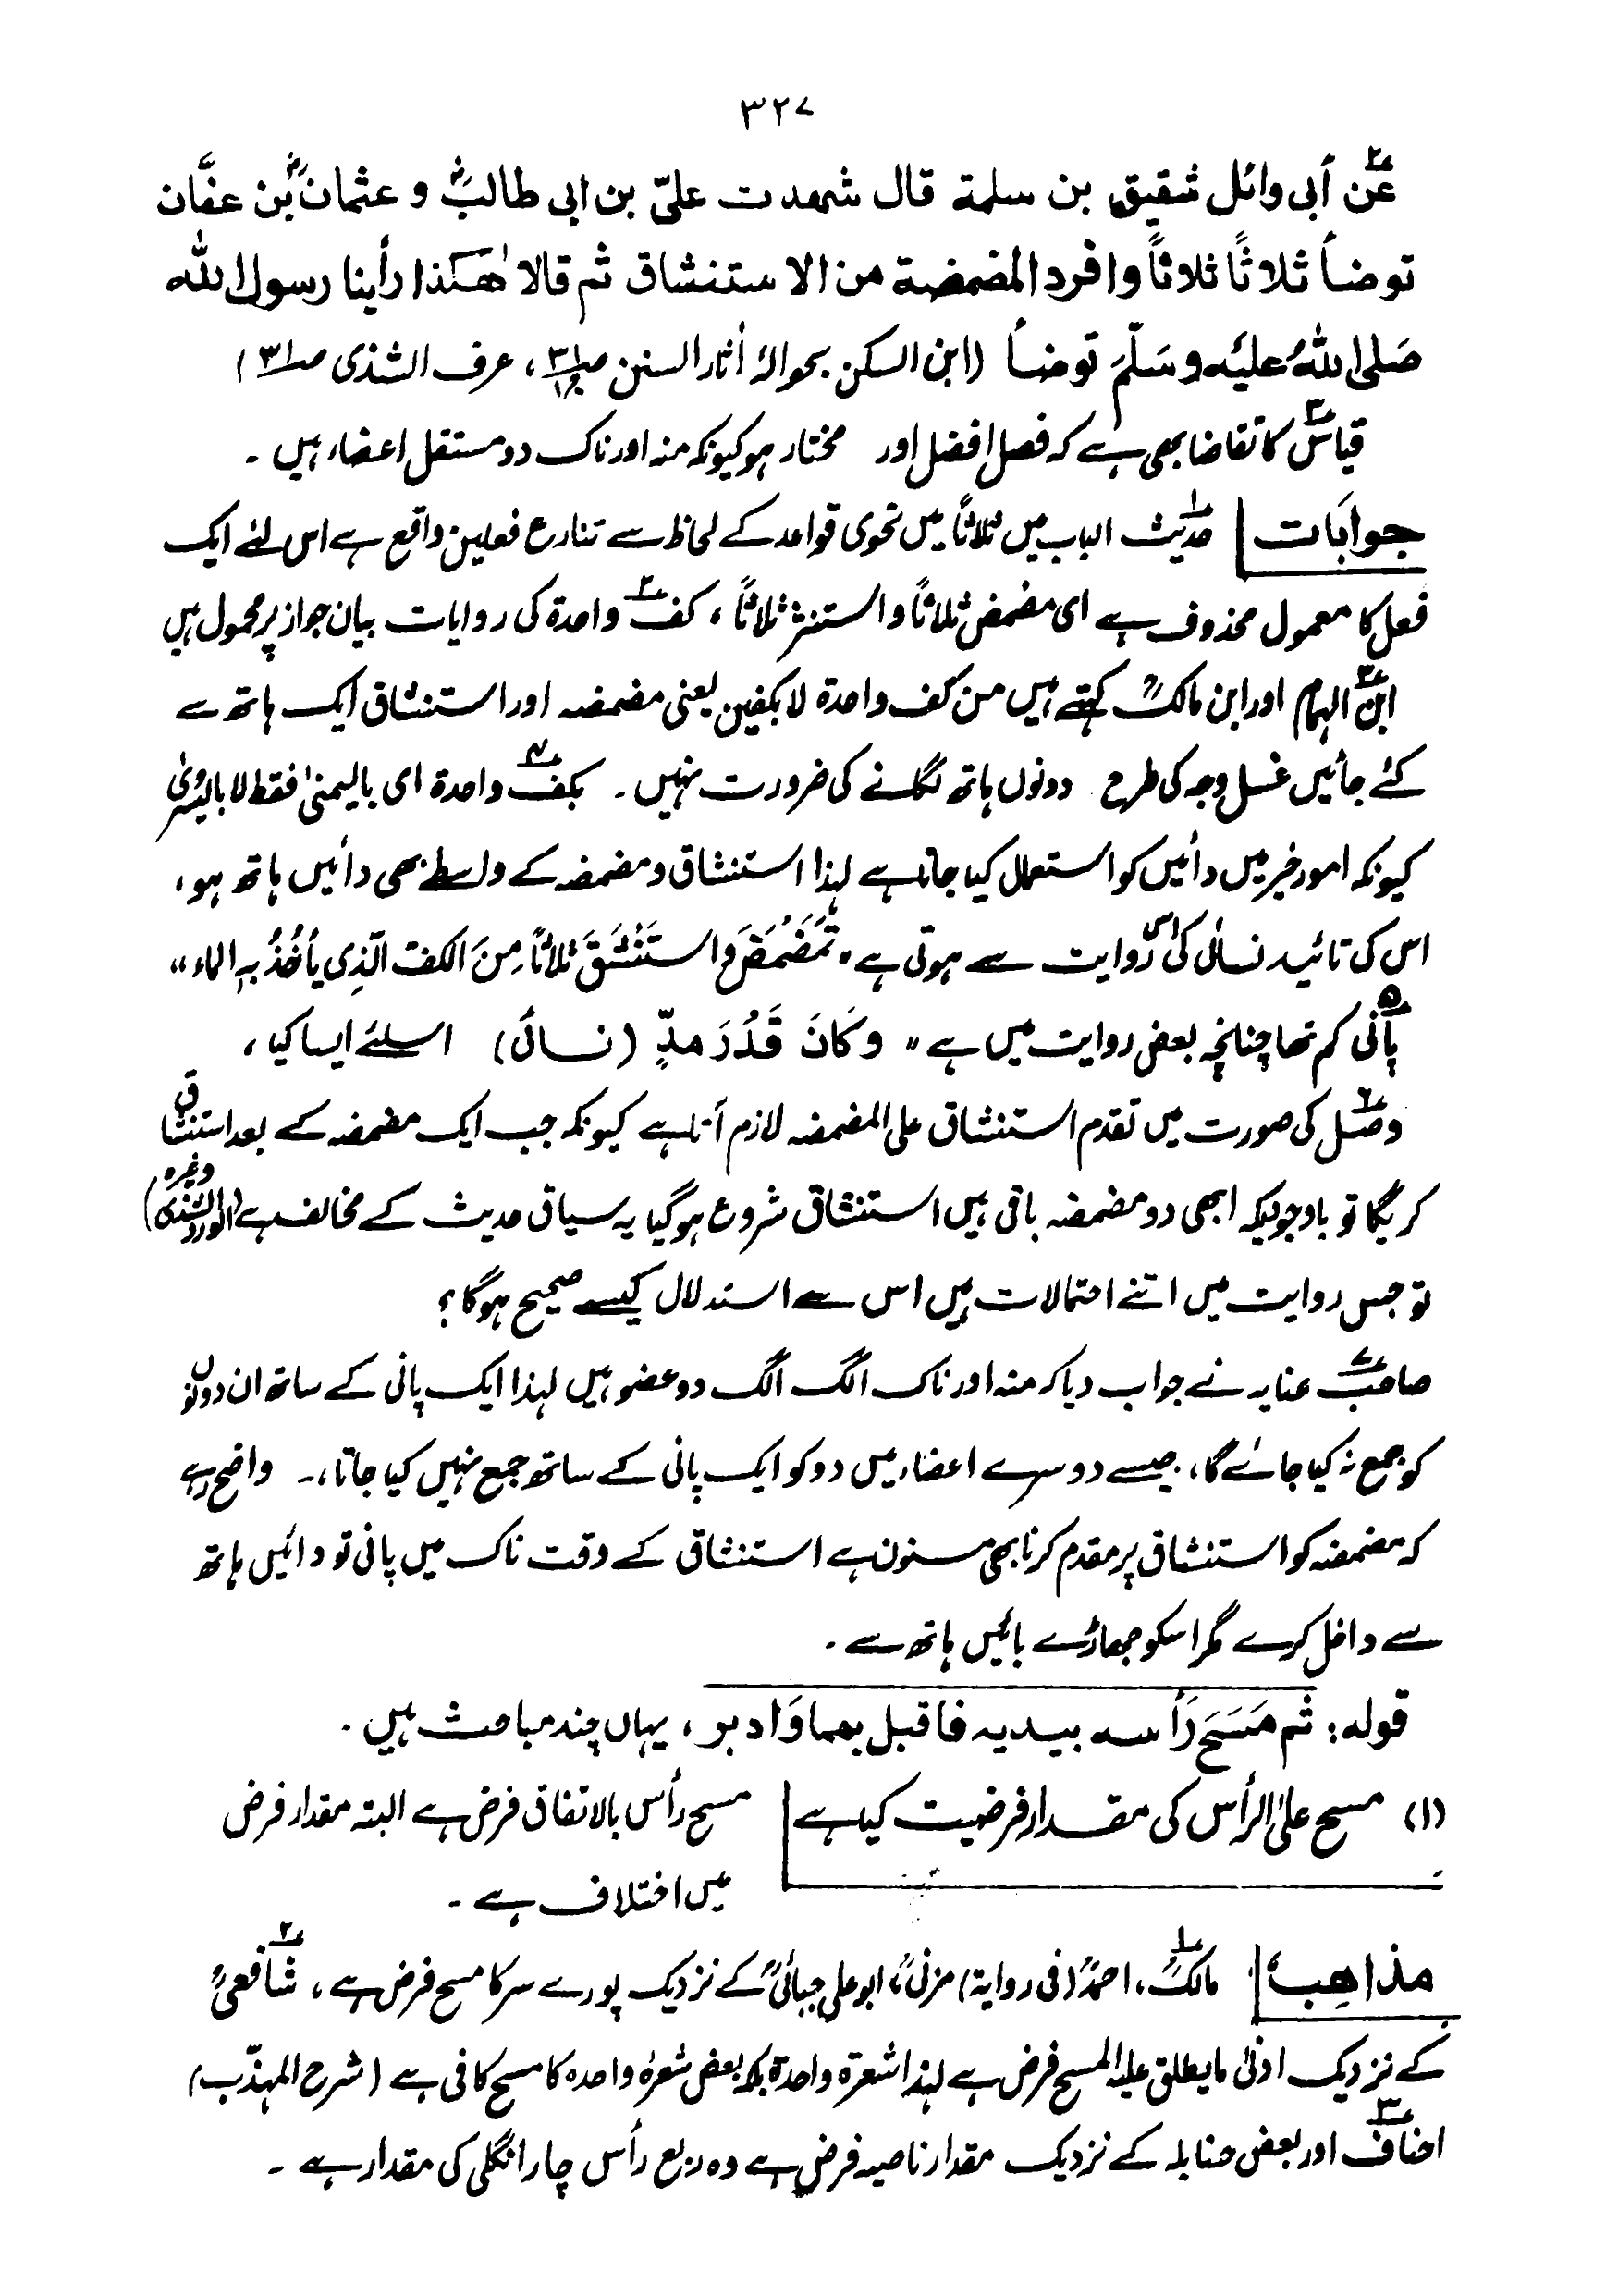 ۳۲۷
عن أبی وائل شقیق بن سلمة قال شهدت علیّ بن ابی طالبؓ و عثمانؓ بن عفَّان
توضأ ثلاثًا ثلاثاً وافرد المضمضة من الاستنشاق ثم قالا هٰکذا رأینا رسول الله
صَلی اللهُ علیَه وسَلَّمَ توضأ (ابن السکن بحوالۂ أثار السنن ص۳۱، عرف الشذی ص۳۱)
۳ قیاس کا تقاضا بھی ہے کہ فصل افضل اور مختار ہو کیونکہ منہ اور ناک دو مستقل اعضاء ہیں ۔
جوابَات ۱ حدیث الباب میں ثلاثاً میں نحوی قواعد کے لحاظ سے تنازع فعلین واقع ہے اس لئے ایک
فعل کا معمول محذوف ہے ای مضمض ثلاثاً واستنثر ثلاثاً ، ۲ کف واحدۃ کی روایات بیان جواز پر محمول ہیں
۳ ابن الہمام اور ابن مالکؒ کہتے ہیں من کف واحدۃ لا بکفین یعنی مضمضہ اور استنشاق ایک ہاتھ سے
کئے جائیں غسل وجہ کی طرح دونوں ہاتھ لگانے کی ضرورت نہیں ۔ ۴ بکف واحدۃ ای بالیمنیٰ فقط لا بالیسریٰ
کیونکہ امور خیر میں دائیں کو استعمال کیا جاتا ہے لہذا استنشاق و مضمضہ کے واسطے بھی دائیں ہاتھ ہو،
اس کی تائید نسائی کی اس روایت سے ہوتی ہے "تَمَضْمَضَ وَاسْتَنْشَقَ ثلاثاً مِنَ الکف الّذِی یأخُذُ بہ الماء"
۵ پانی کم تھا چنانچہ بعض روایت میں ہے "وَکَانَ قَدُرَ مدٍّ (نسائی) اسلئے ایسا کیا ،
۶ وصل کی صورت میں تقدم استنشاق علی المضمضہ لازم آتا ہے کیونکہ جب ایک مضمضہ کے بعد استنشاق
کریگا تو باوجودیکہ ابھی دو مضمضہ باقی ہیں استنشاق شروع ہوگیا یہ سیاق حدیث کے مخالف ہے (الورد الشذی وغیرہ)
تو جس روایت میں اتنے احتمالات ہیں اس سے استدلال کیسے صحیح ہوگا ؟
۷ صاحب عنایہ نے جواب دیا کہ منہ اور ناک الگ الگ دو عضو ہیں لہذا ایک پانی کے ساتھ ان دونوں
کو جمع نہ کیا جائے گا، جیسے دوسرے اعضاء میں دو کو ایک پانی کے ساتھ جمع نہیں کیا جاتا ،۔ واضح رہے
کہ مضمضہ کو استنشاق پر مقدم کرنا بھی مسنون ہے استنشاق کے وقت ناک میں پانی تو دائیں ہاتھ
سے داخل کرے مگر اسکو جھاڑے بائیں ہاتھ سے ۔
قوله: ثم مَسَحَ رَأسه بیدیه فاقبل بهما وَادبر ، یہاں چند مباحث ہیں ۔
(۱) مسح علیٰ الرأس کی مقدار فرضیت کیا ہے مسح رأس بالاتفاق فرض ہے البتہ مقدار فرض
میں اختلاف ہے ۔
مذاهِب ۱ مالکؒ، احمدؒ (فی روایة) مزنیؒ، ابوعلی جبائیؒ کے نزدیک پورے سر کا مسح فرض ہے ، ۲ شافعیؒ
کے نزدیک ادنیٰ ما یطلق علیہ المسح فرض ہے لہذا شعرۃ واحدۃ بلکہ بعض شعرہ واحدہ کا مسح کافی ہے (شرح المہذّب)
۳ احناف اور بعض حنابلہ کے نزدیک مقدار ناصیہ فرض ہے وہ ربع رأس چار انگلی کی مقدار ہے ۔